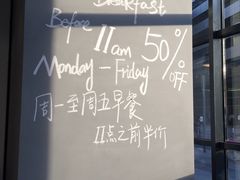 Breakfast
Before 11am 50% OFF
Monday - Friday
周一至周五早餐
11点之前半价